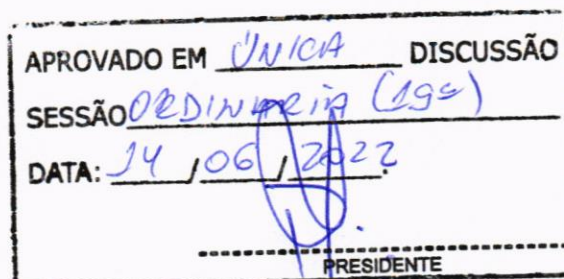 APROVADO EM ÚNICA DISCUSSÃO
SESSÃO ORDINARIA (19ª)
DATA: 14 / 06 / 2022.
PRESIDENTE